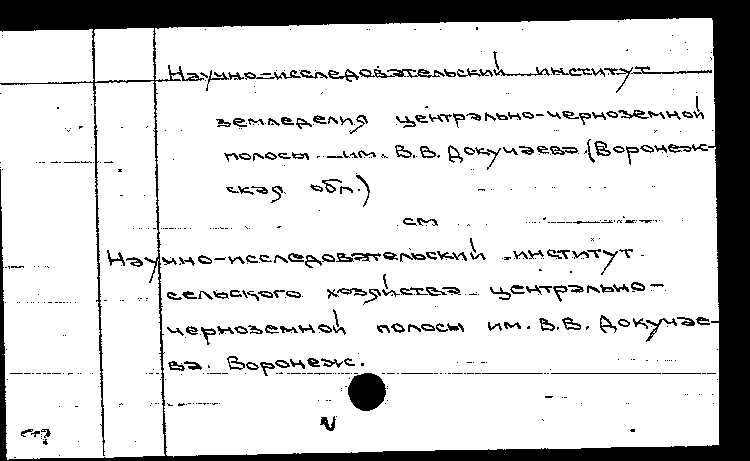 Научно-исследовательский институт
земледелия центрально-черноземной
полосы им. В.В. Докучаева (Воронеж-
ская обл.)
см
Научно-исследовательский институт
сельского хозяйства центрально-
черноземной полосы им. В.В. Докучае-
ва. Воронеж.